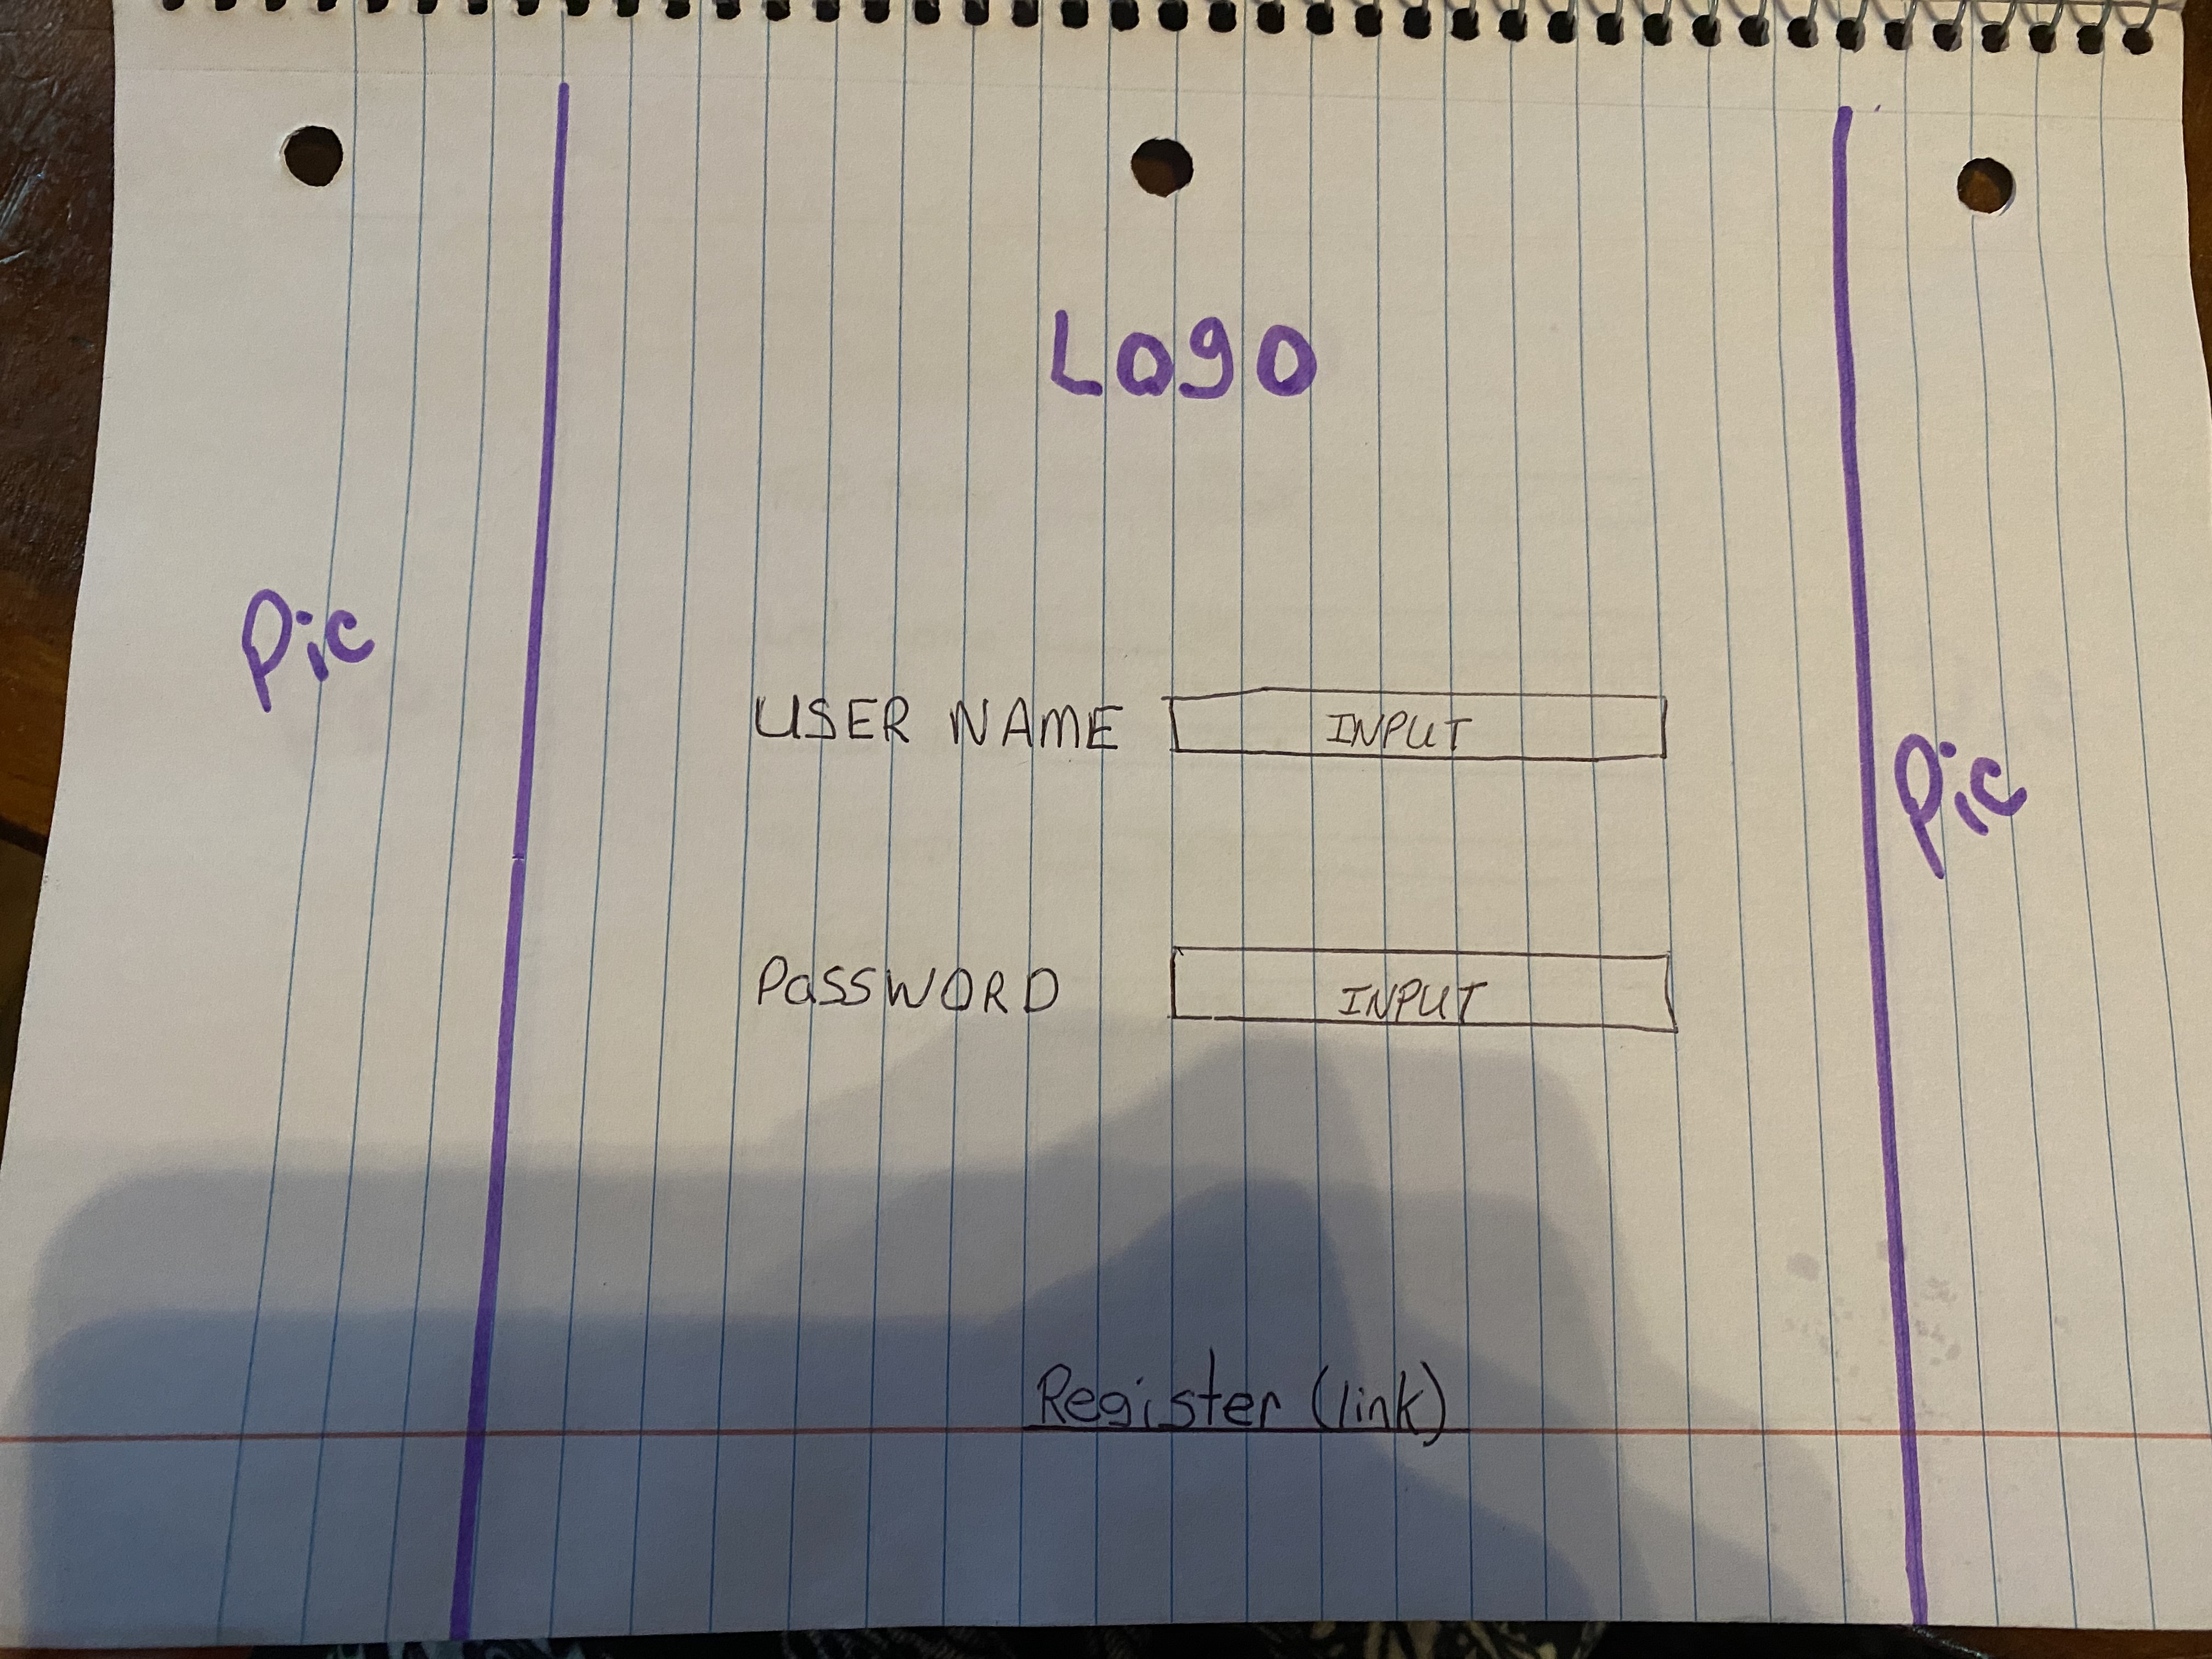 Logo
Pic
USER NAME INPUT
Password INPUT
Pic
Register (link)